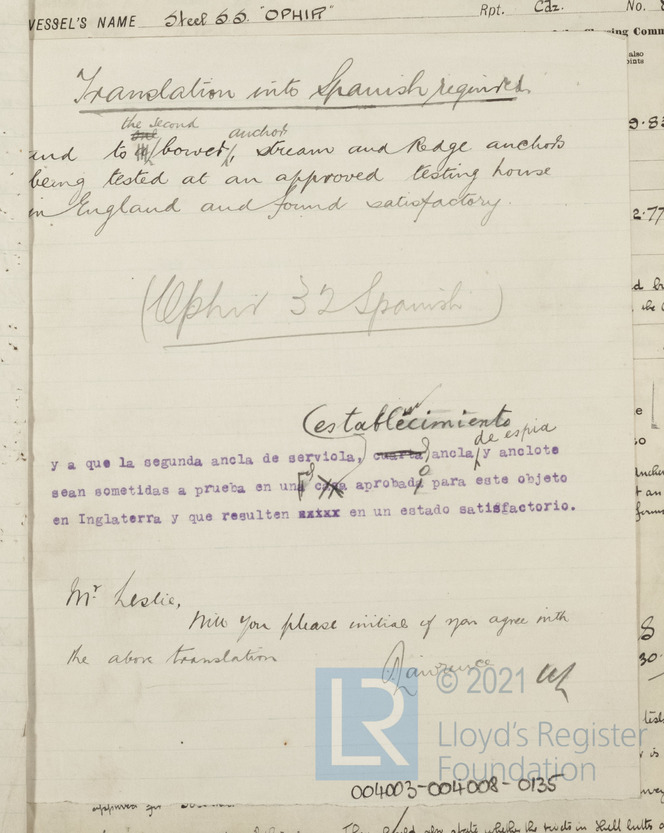 VESSEL'S NAME Steel SS "OPHIR" Rpt. Cdz. No.
Translation into Spanish required.
the second
one anchor
and to bower, stream and Kedge anchors
being tested at an approved testing house
in England and found satisfactory.
(Ophir 32 Spanish)
(establecimiento
de espia
y a que la segunda ancla de serviola, cuarta ancla y anclote
sean sometidas a prueba en una casa aprobada para este objeto
en Inglaterra y que resulten xxxxx en un estado satisfactorio.
Mr Leslie,
Will you please initial if you agree with
the above translation
Lawrence
© 2021
LR
Lloyd's Register
Foundation
004003-004008-0135